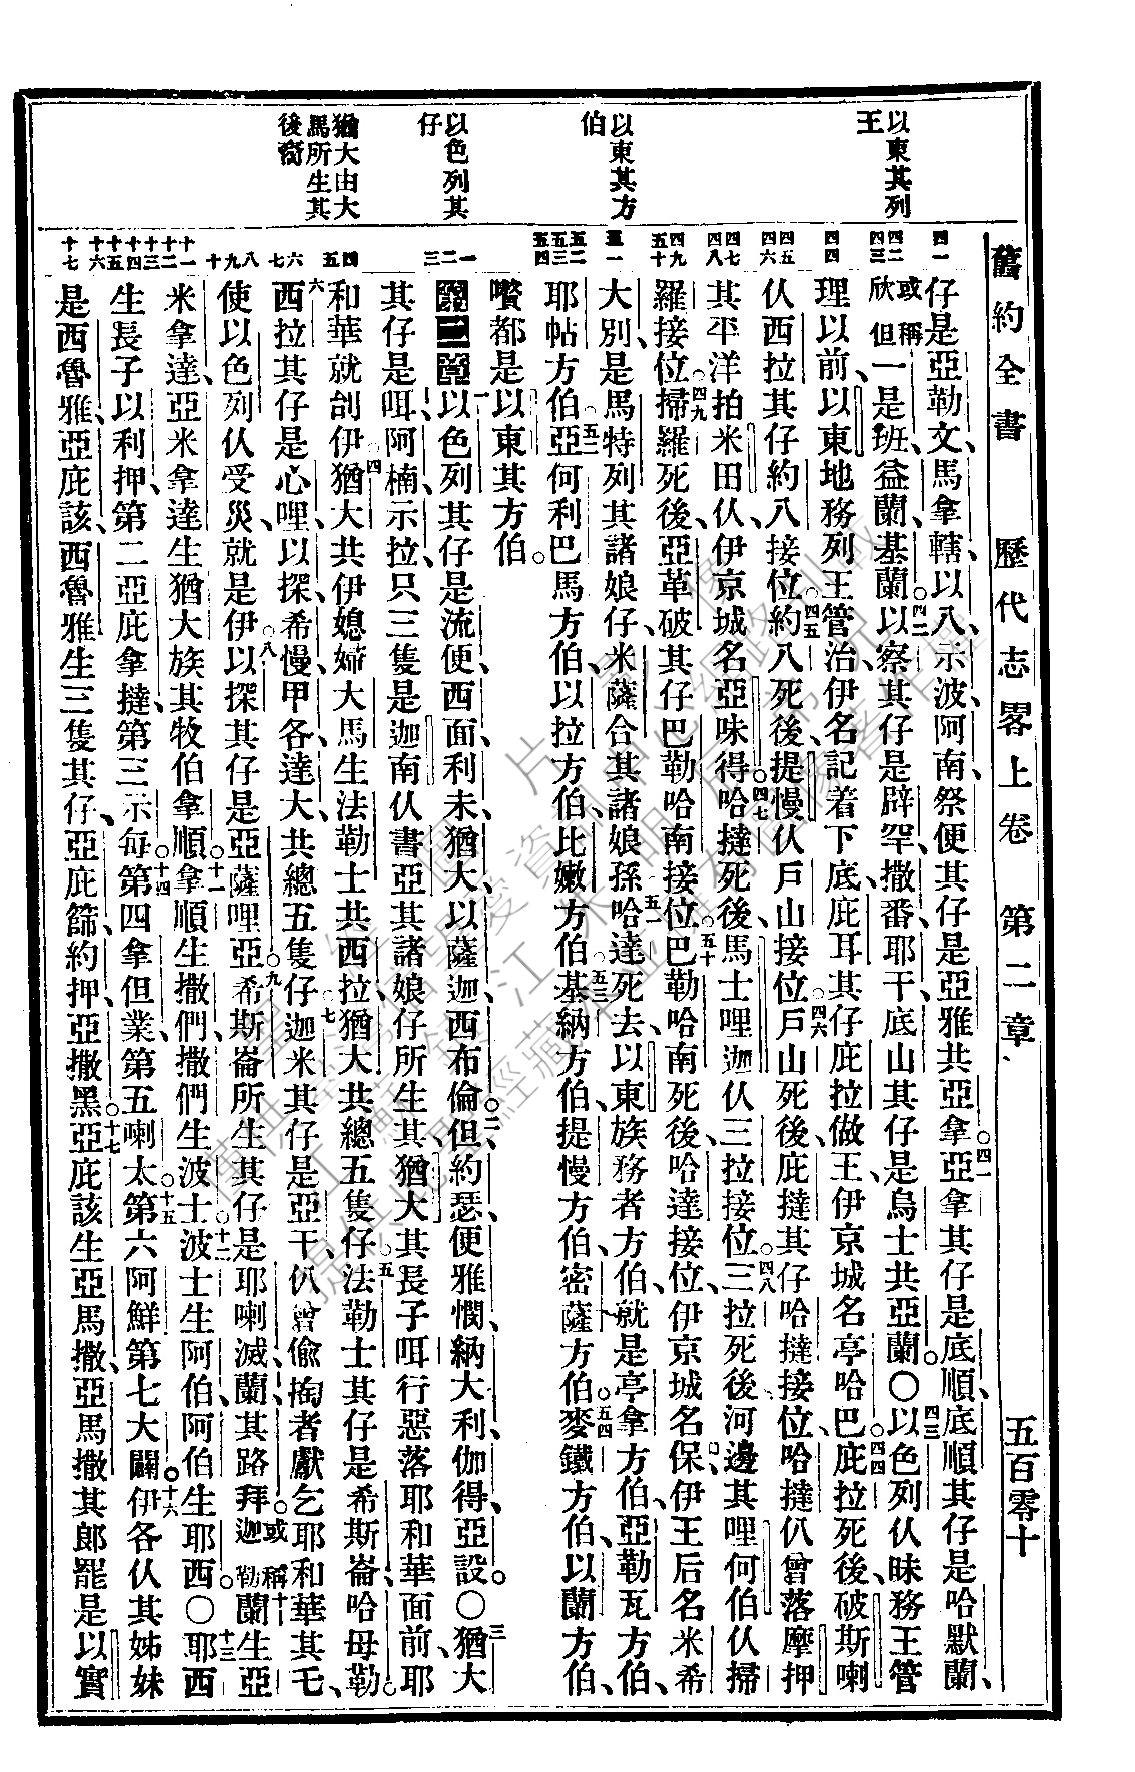 舊約全書 歷代志畧上卷 第二章 五百零十
以東其列王
以東其方伯
以色列其仔
猶大由大馬所生其後裔
仔是亞勒文、馬拿轄、以八、示波、阿南、祭便其仔是亞雅共亞拿。四一亞拿其仔是底順、底順其仔是哈默蘭、
或稱欣但一是班、益蘭、基蘭。四二以察其仔是辟罕、撒番、耶干、底山其仔是烏士共亞蘭。〇四三以色列仈昧務王管
理以前、以東地務列王管治、伊名記着下底、庇耳其仔庇拉做王、伊京城名亭哈巴。四四庇拉死後、破斯喇
仈西拉其仔約八接位。四五約八死後、提慢仈戶山接位。四六戶山死後、庇撻其仔哈撻接位、哈撻仈曾落摩押
其平洋拍米田仈、伊京城名亞味得。四七哈撻死後、馬士哩迦仈三拉接位。四八三拉死後、河邊其哩何伯仈掃
羅接位。四九掃羅死後、亞革破其仔巴勒哈南接位。五十巴勒哈南死後、哈達接位、伊京城名保、伊王后名米希
大別、是馬特列其諸娘仔、米薩合其諸娘孫。五一哈達死去、以東族務者方伯、就是亭拿方伯、亞勒瓦方伯、
耶帖方伯。五二亞何利巴馬方伯、以拉方伯、比嫩方伯。五三基納方伯、提慢方伯、密薩方伯。五四麥鐵方伯、以蘭方伯、
嚽都是以東其方伯。
第二章 一以色列其仔是流便、西面、利未、猶大、以薩迦、西布倫。二但、約瑟、便雅憫、納大利、伽得、亞設。〇三猶大
其仔是咡、阿楠、示拉、只三隻是迦南仈書亞其諸娘仔所生其、猶大其長子咡行惡落耶和華面前、耶
和華就刣伊。四猶大共伊媳婦大馬生法勒士共西拉、猶大共總五隻仔。五法勒士其仔是希斯崙、哈母勒。
六西拉其仔是心哩、以探、希慢、甲各、達大、共總五隻仔。七迦米其仔是亞干、仈曾偷掏者獻乞耶和華其乇、
使以色列仈受災、就是伊。八以探其仔是亞薩哩亞。九希斯崙所生其仔是耶喇滅、蘭其路拜。或稱迦勒十蘭生亞
米拿達、亞米拿達生猶大族其牧伯拿順。十一拿順生撒們、撒們生波士。十二波士生阿伯、阿伯生耶西。〇十三耶西
生長子以利押、第二亞庇拿撻、第三示每。十四第四拿但業、第五喇太。十五第六阿鮮、第七大闢。十六伊各仈其姊妹
是西魯雅、亞庇該、西魯雅生三隻其仔、亞庇篩、約押、亞撒黑。十七亞庇該生亞馬撒、亞馬撒其郎罷是以實